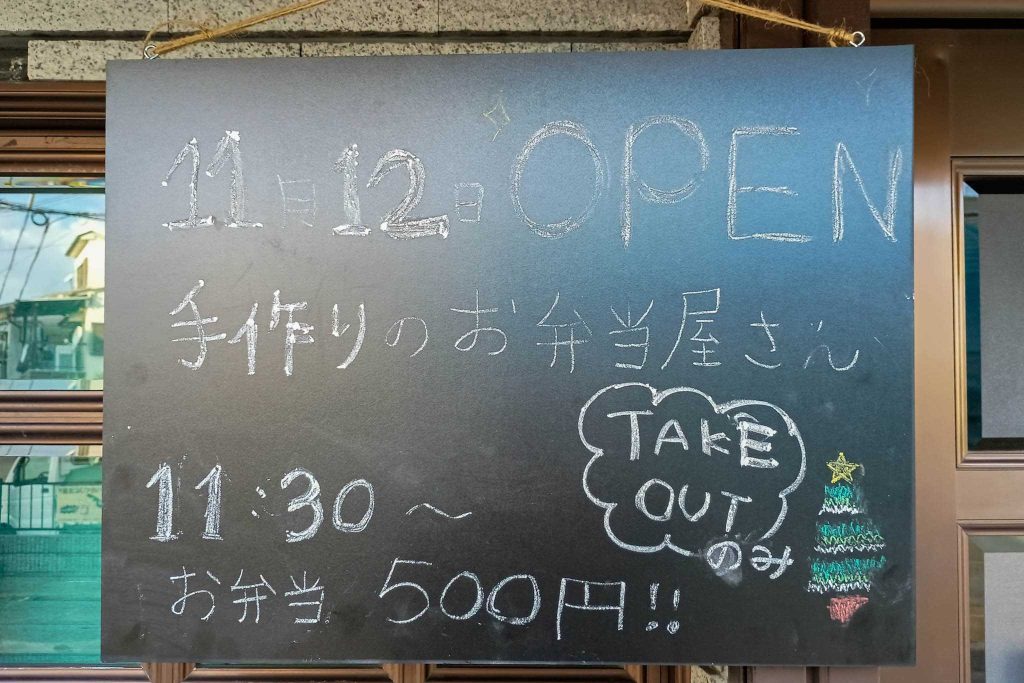 11月12日 OPEN
手作りのお弁当屋さん
TAKE
OUT
のみ
11:30～
お弁当 500円!!